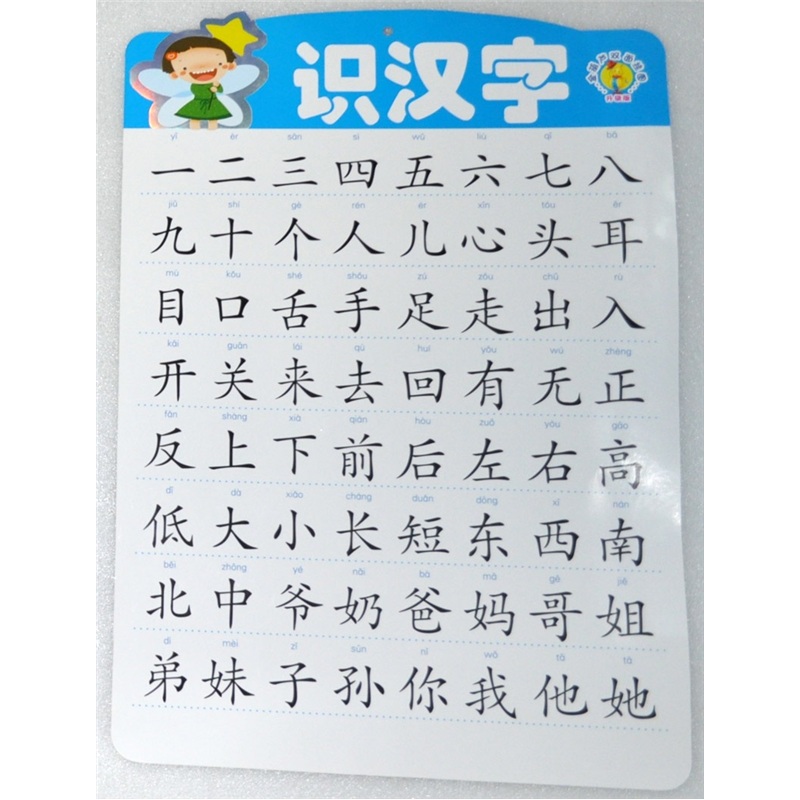 识汉字
升级版
yī èr sān sì wǔ liù qī bā
一 二 三 四 五 六 七 八
jiǔ shí gè rén ér xīn tóu ěr
九 十 个 人 儿 心 头 耳
mù kǒu shé shǒu zú zǒu chū rù
目 口 舌 手 足 走 出 入
kāi guān lái qù huí yǒu wú zhèng
开 关 来 去 回 有 无 正
fǎn shàng xià qián hòu zuǒ yòu gāo
反 上 下 前 后 左 右 高
dī dà xiǎo cháng duǎn dōng xī nán
低 大 小 长 短 东 西 南
běi zhōng yé nǎi bà mā gē jiě
北 中 爷 奶 爸 妈 哥 姐
dì mèi zǐ sūn nǐ wǒ tā tā
弟 妹 子 孙 你 我 他 她